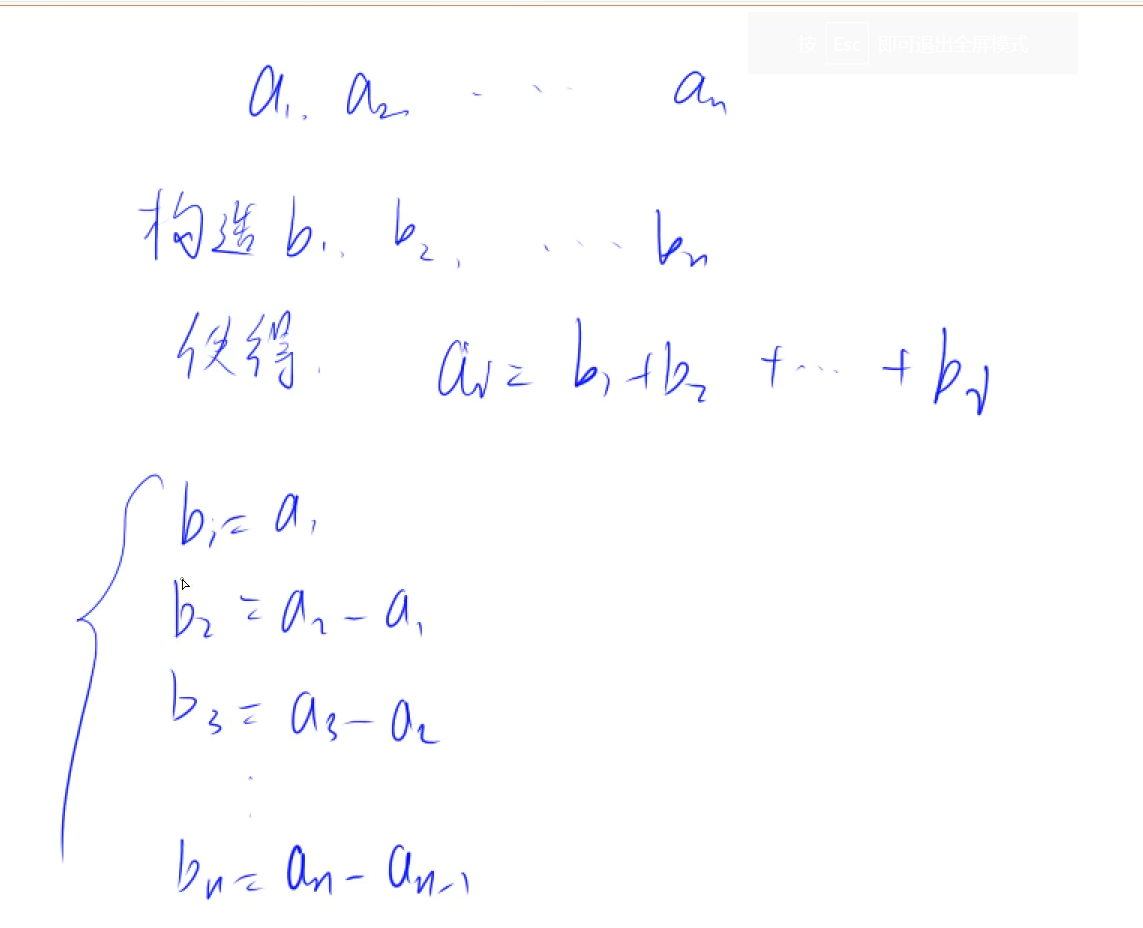 按 Esc 即可退出全屏模式
a₁, a₂ ... aₙ
构造 b₁, b₂, ... bₙ
使得. aᵢ = b₁ + b₂ + ... + bᵢ
b₁ = a₁
b₂ = a₂ - a₁
b₃ = a₃ - a₂
⋮
bₙ = aₙ - aₙ₋₁